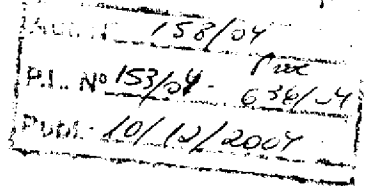 158/04
P.L. Nº 153/04 - Proc 636/04
Publ. 10/12/2004